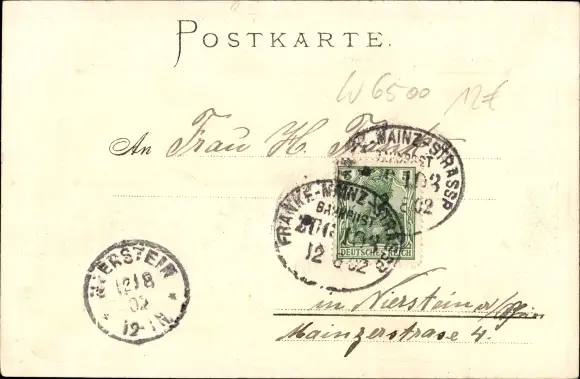 POSTKARTE.
W 6500 12€
An Frau H.
MAINZ-STRASSB
BAHNPOST
FRANKF-MAINZ-
BAHNPOST
12 8 02
DEUTSCHES REICH
NIERSTEIN
12/8
02
* 12-1N *
in Nierstein a/Rhein
Mainzerstrase 4.